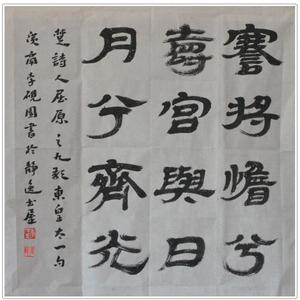 謇將憺兮
壽宮與日
月兮齊光
楚詩人屈原之九歌東皇太一句
南李硯書於靜書屋